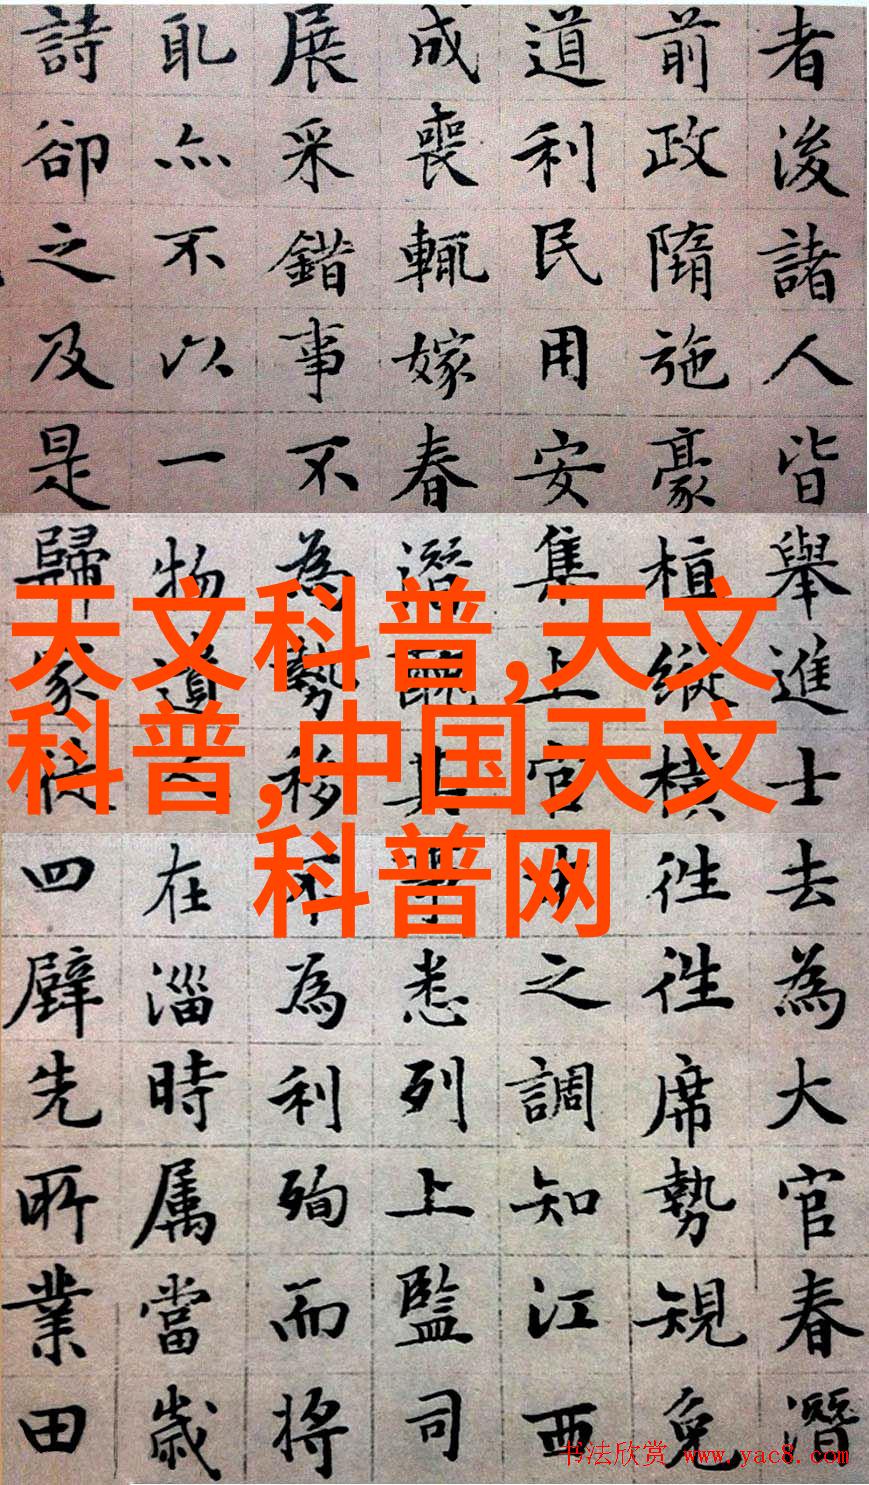 者後諸人皆舉進士去為大官春潛
前政隋施豪植縱橫往往席勢規免
道利民用安集上官之調知江西
成喪輒嫁春潛其事悉列上監司
展采錯事不為勢移不為利殉而將
恥亦不以一物遺人在淄時属當歲
詩卻之及是歸家徒四壁先所業田
天文科普,天文
科普,中国天文
科普网
书法欣赏 www.yac8.com